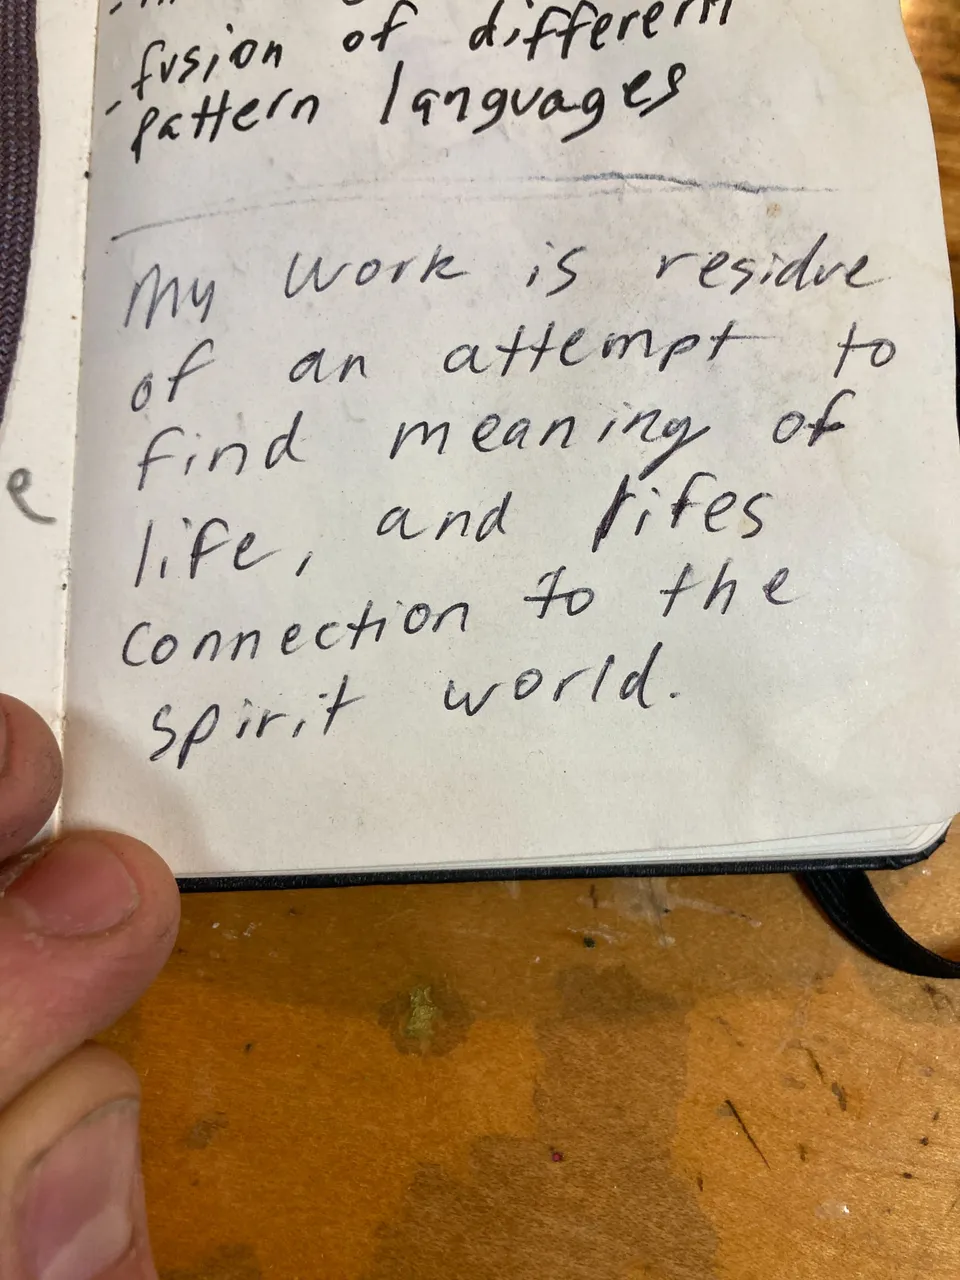 - fusion of different
- pattern languages
My work is residue
of an attempt to
find meaning of
life, and lifes
connection to the
spirit world.
e